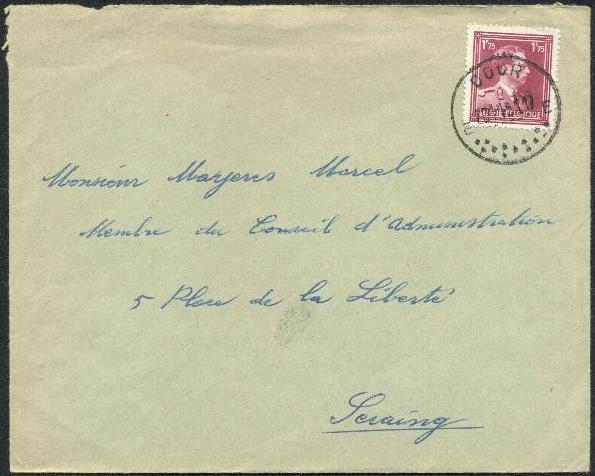 1F75 1F75
DOUR
BELGIE-BELGIQUE
Monsieur Marjeres Marcel
Membre du Conseil d'Administration
5 Place de la Liberté
Seraing